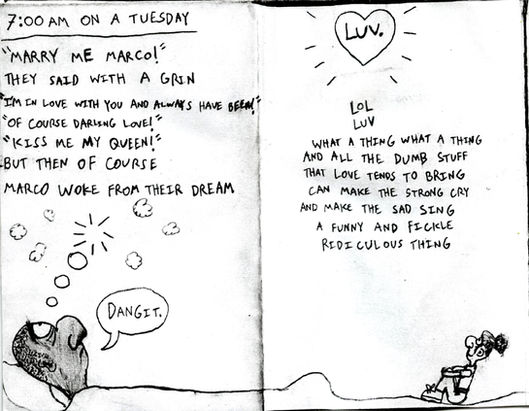 7:00 AM ON A TUESDAY
"MARRY ME MARCO!"
THEY SAID WITH A GRIN
"I'M IN LOVE WITH YOU AND ALWAYS HAVE BEEN!"
"OF COURSE DARLING LOVE!"
"KISS ME MY QUEEN!"
BUT THEN OF COURSE
MARCO WOKE FROM THEIR DREAM
DANGIT.
LUV.
LOL
LUV
WHAT A THING WHAT A THING
AND ALL THE DUMB STUFF
THAT LOVE TENDS TO BRING
CAN MAKE THE STRONG CRY
AND MAKE THE SAD SING
A FUNNY AND FICKLE
RIDICULOUS THING